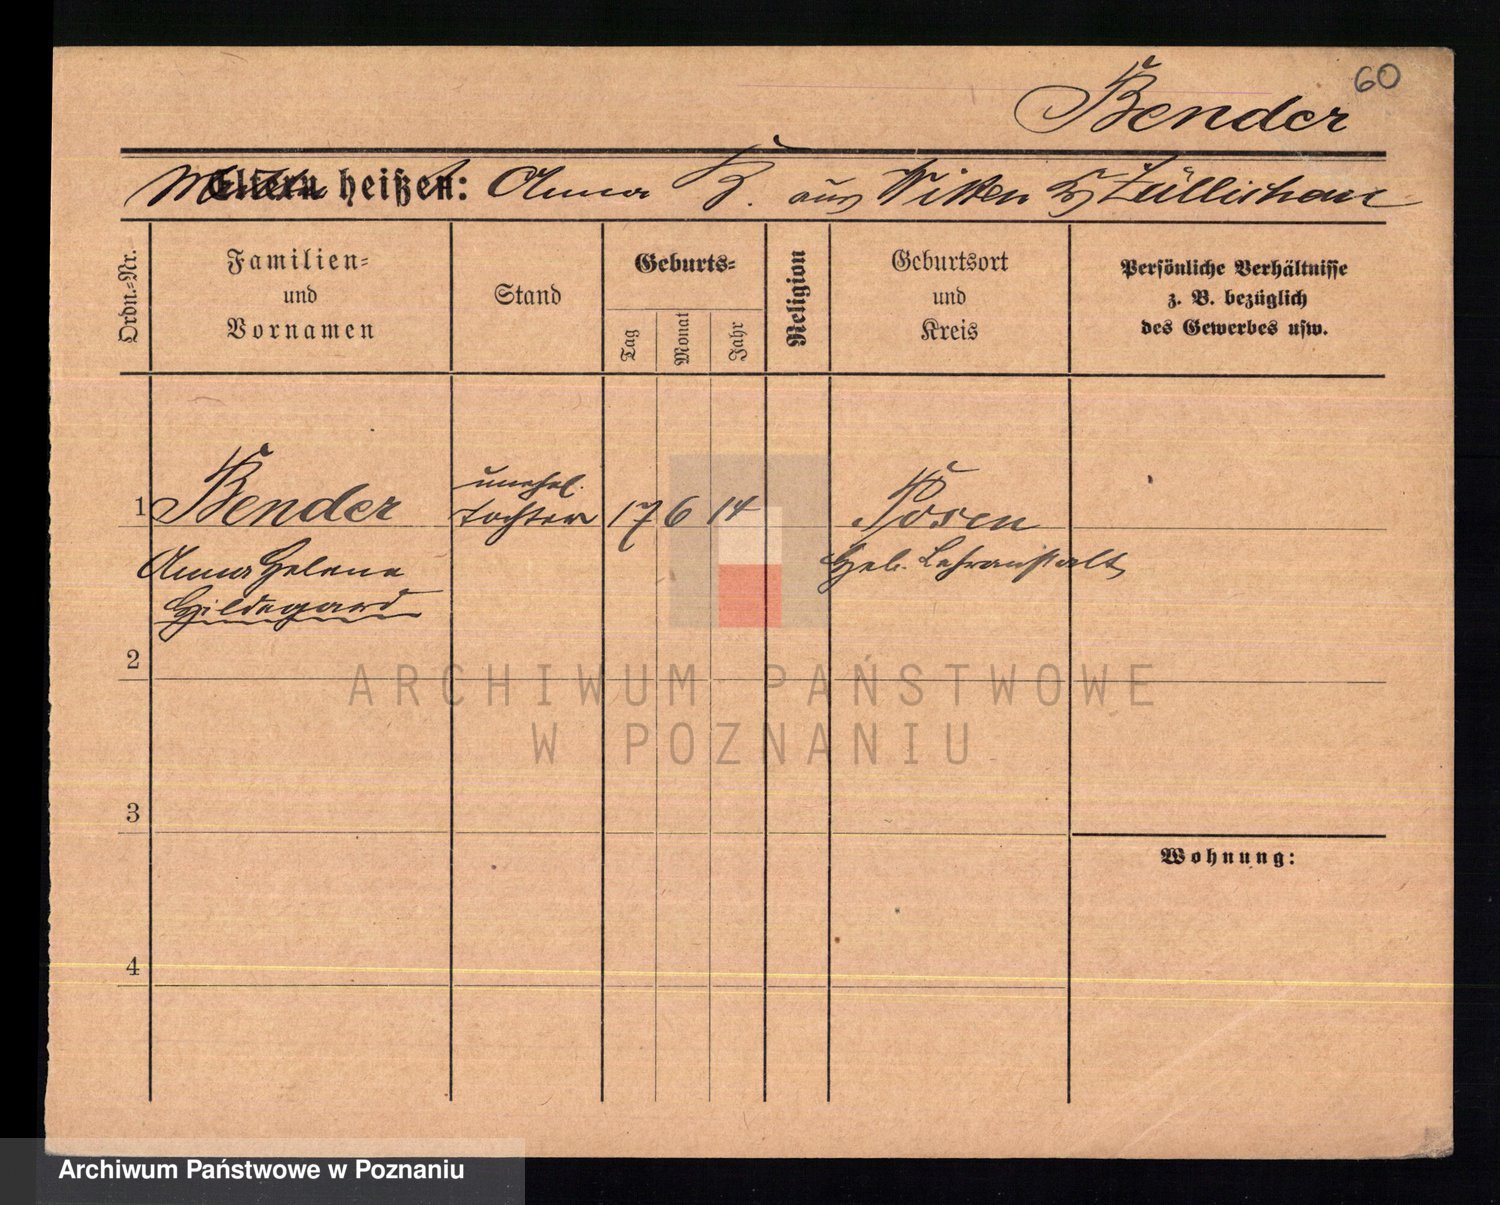 60
Bender
Mutter heißen: Anna B. aus Kr. Züllichau
Ordn.-Nr.
Familien-
und
Vornamen
Stand
Geburts-
Tag
Monat
Jahr
Religion
Geburtsort
und
Kreis
Persönliche Verhältnisse
z. B. bezüglich
des Gewerbes usw.
unehel.
1 Bender Tochter 17 6 14 Posen
Anna Helene Heb. Lehranstalt
Hildegard
2
ARCHIWUM PAŃSTWOWE
W POZNANIU
3
Wohnung:
4
Archiwum Państwowe w Poznaniu